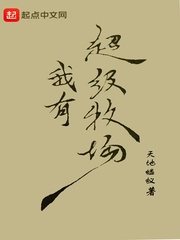 起点中文网
我有
超级牧场
天地蝼蚁著